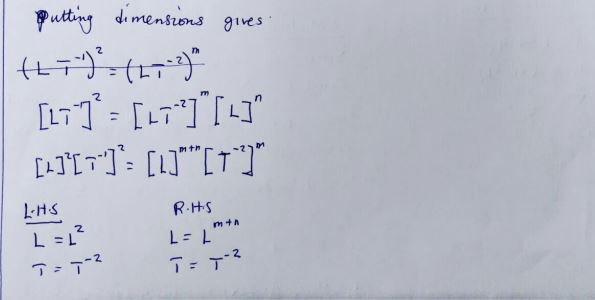 Putting dimensions gives.
(L T⁻¹)² = (LT⁻²)ᵐ
[LT⁻¹]² = [LT⁻²]ᵐ [L]ⁿ
[L]²[T⁻¹]² = [L]ᵐ⁺ⁿ [T⁻²]ᵐ
L.H.S R.H.S
L = L² L = Lᵐ⁺ⁿ
T = T⁻² T = T⁻²